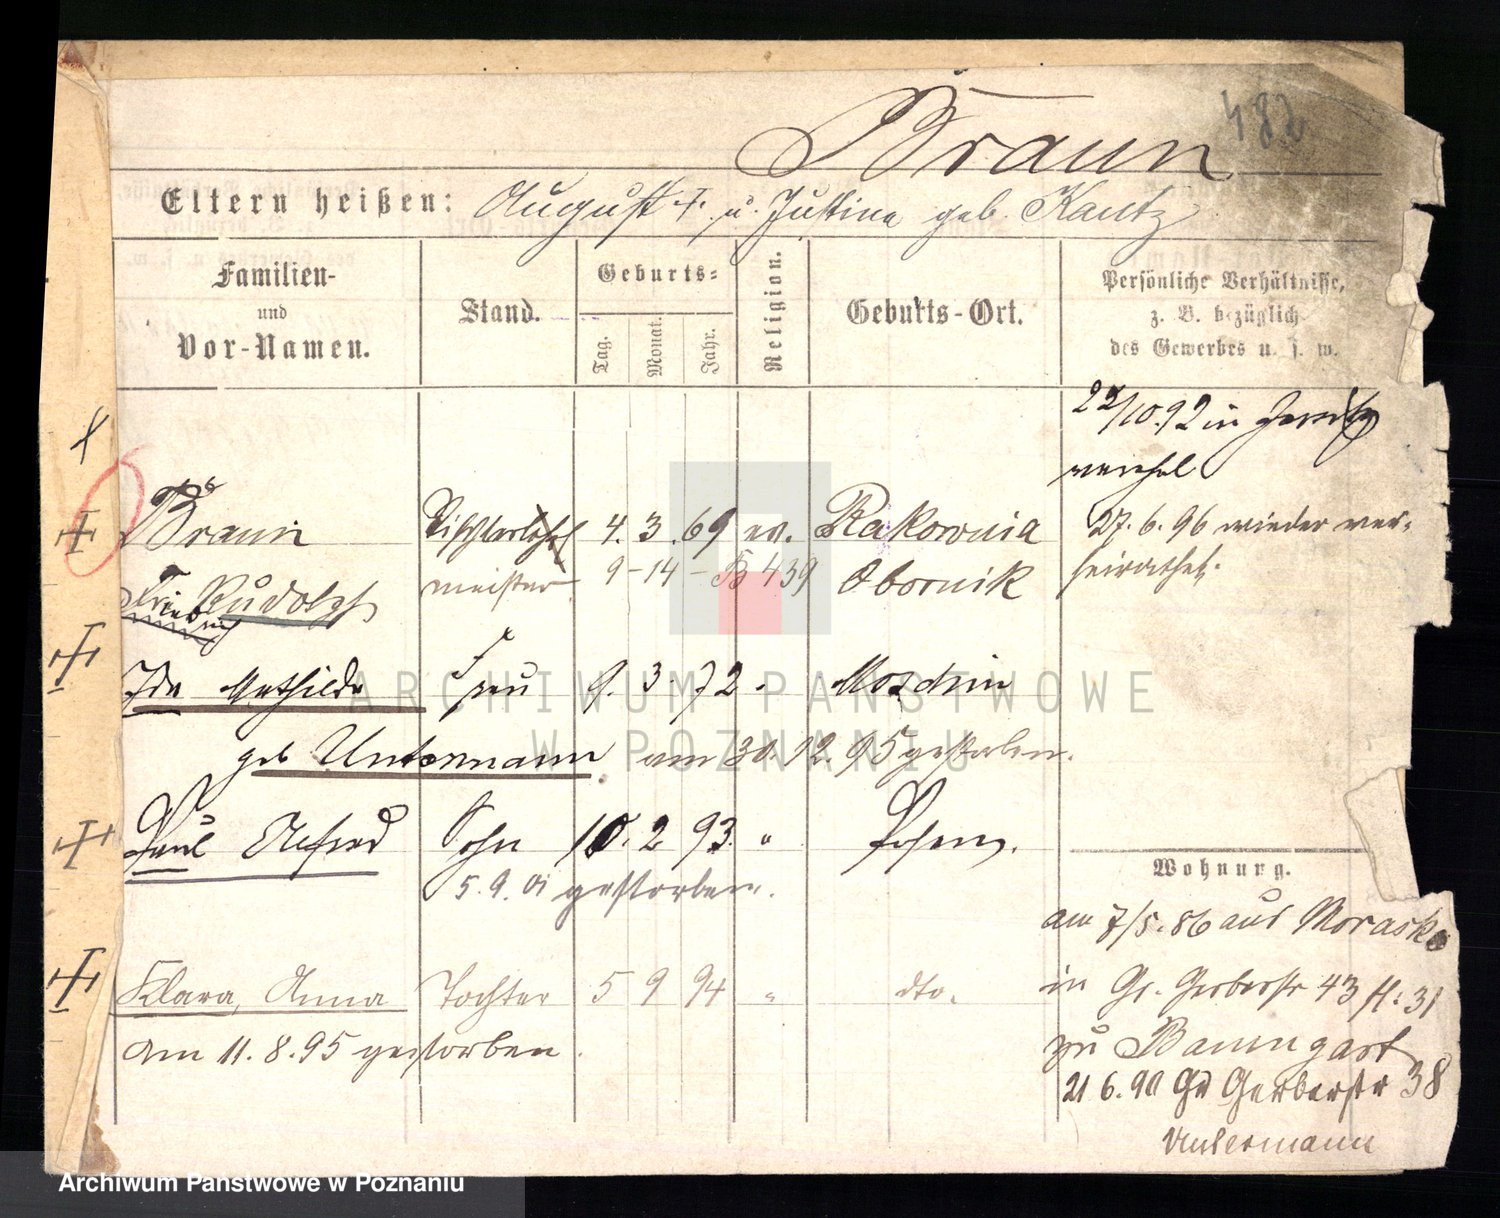 482
Braun
Eltern heißen: August †. u. Justina geb. Kautz
Familien-
und
Vor-Namen.
Stand.
Geburts-
Tag.
Monat.
Jahr.
Religion.
Geburts-Ort.
Persönliche Verhältnisse,
z. B. bezüglich
des Gewerbes u. s. w.
22/10.92 in Jersitz
27. 6. 96 wieder ver-
heirathet.
Braun
Friedrich Rudolph
Tischler
meister
4. 3. 69 ev. Rakownia
9-14 - B 439 Obornik
Ida Mathilde Frau 9. 3. 72. Moschin
geb Untermann am 30. 12. 95 gestorben.
Paul Alfred Sohn 10. 2 93. " Posen.
5. 9. 01 gestorben.
Klara, Anna Tochter 5 9 94 " dto.
am 11. 8. 95 gestorben.
Wohnung.
am 7/5. 86 aus Morasko
in Gr. Gerberstr 43 H: 31
zu Baumgart
21 6. 90 Gr Gerberstr 38
Untermann
ARCHIWUM PAŃSTWOWE
W POZNANIU
Archiwum Państwowe w Poznaniu